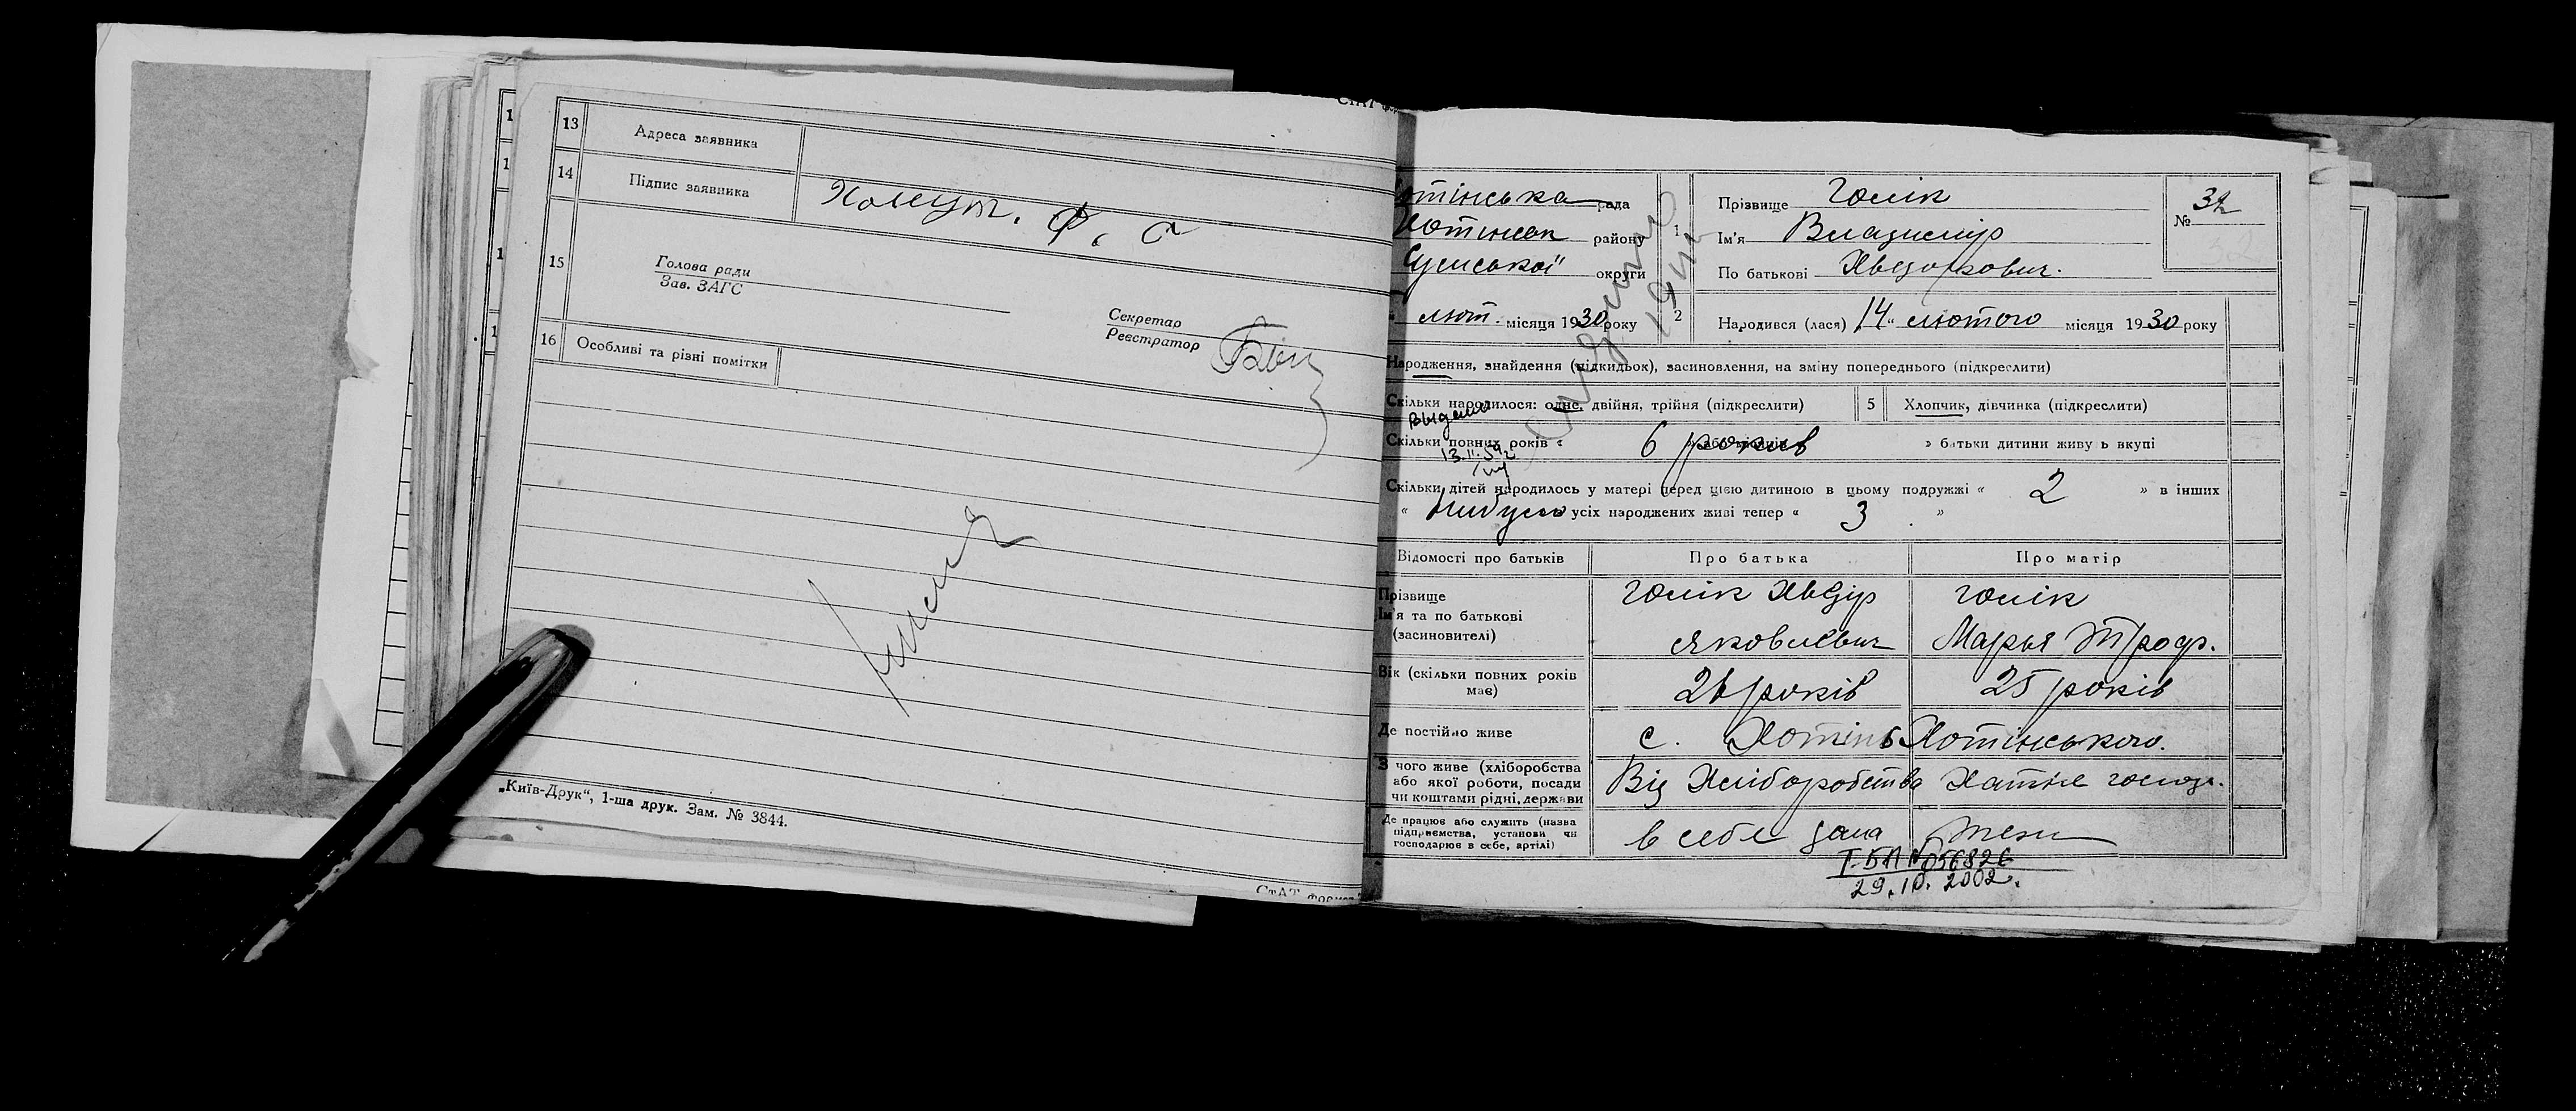 13 Адреса заявника
14 Підпис заявника Хомут. Ф. С
15 Голова ради
Зав. ЗАГС
Секретар
Реєстратор
16 Особливі та різні помітки
„Київ-Друк“, 1-ша друк. Зам. № 3844.
СтАТ форма
отінська рада
Хотінськ району
Сумської округи
лют. місяця 1930 року
1 Прізвище Голік
Ім'я Владимір
По батькові Хведоркович.
№ 32
2 Народився (лася) „14“ лютого місяця 1930 року
Народження, знайдення (підкидьок), засиновлення, на зміну попереднього (підкреслити)
Скільки народилося: одне, двійня, трійня (підкреслити) 5 Хлопчик, дівчинка (підкреслити)
Выдано
Скільки повних років « 6 років » батьки дитини живуть вкупі
13.II.59
Скільки дітей народилось у матері перед цією дитиною в цьому подружжі « 2 » в інших
« усіх народжених живі тепер « 3 »
Відомості про батьків Про батька Про матір
Прізвище Голік Хведір Голік
Ім'я та по батькові
(засиновителі) Яковлевич Марья Троф.
Вік (скільки повних років має) 26 років 25 років
Де постійно живе с. Хотінь Хотінського.
З чого живе (хліборобства Від Хліборобства Хатнє господ.
або якої роботи, посади
чи коштами рідні, держави
Де працює або служить (назва
підприємства, установи чи
господарює в себе, артілі) в себе дома Теж
І-БП №056826
29.10.2002.